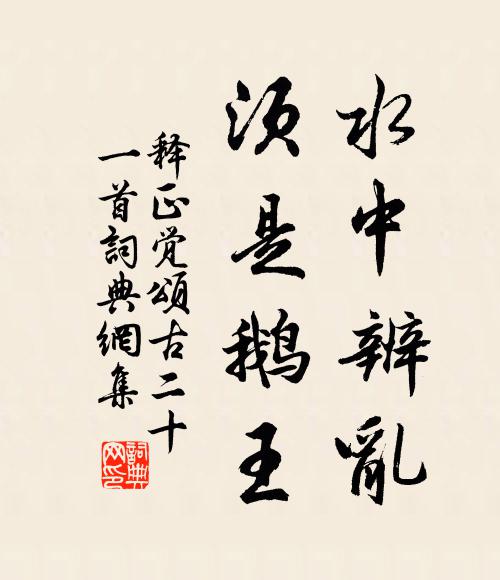 水中辨亂
須是鵝王
释正觉頌古二十
一首詞典網集
詞典网印